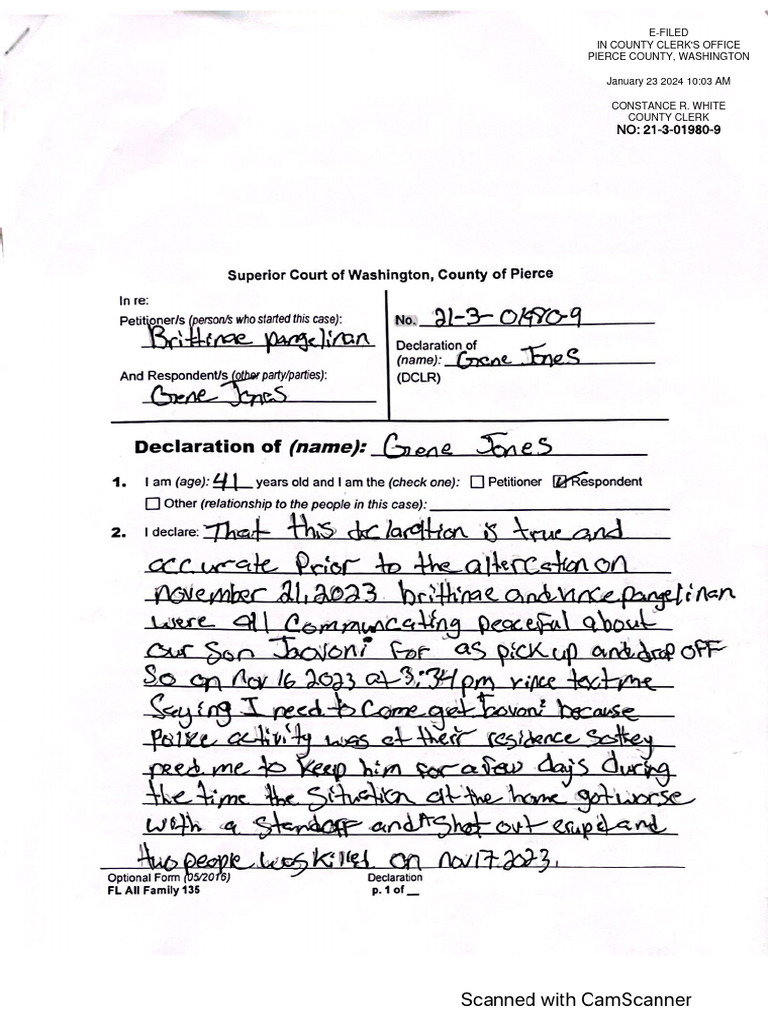 E-FILED
IN COUNTY CLERK'S OFFICE
PIERCE COUNTY, WASHINGTON
January 23 2024 10:03 AM
CONSTANCE R. WHITE
COUNTY CLERK
NO: 21-3-01980-9
Superior Court of Washington, County of Pierce
In re:
Petitioner/s (person/s who started this case):
Brittinae pangelinan
And Respondent/s (other party/parties):
Gene Jones
No. 21-3-01980-9
Declaration of
(name): Gene Jones
(DCLR)
Declaration of (name): Gene Jones
1. I am (age): 41 years old and I am the (check one): Petitioner Respondent
Other (relationship to the people in this case):
2. I declare: That this declartion is true and
accurate Prior to the altercation on
november 21, 2023 brittinae and vince pangelinan
were all Communcating peaceful about
our Son Jaovoni for as pick up and drop off
So on Nov 16 2023 at 3:34pm vince text me
Saying I need to come get because
Police activity was at their residence so they
need me to keep him for a few days during
the time the Situation at the home got worse
with a Standoff and A Shot out and
two people was killed on nov 17 2023.
Optional Form (05/2016)
FL All Family 135
Declaration
p. 1 of __
Scanned with CamScanner